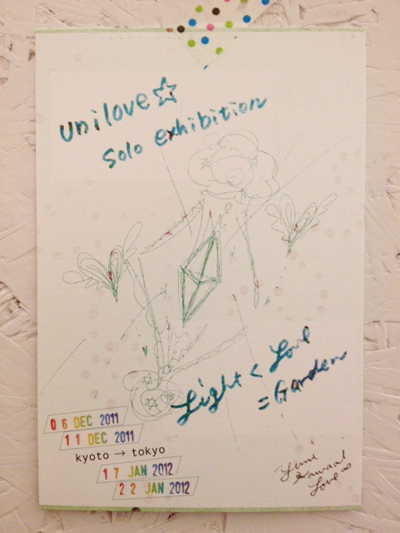 unilove☆
solo exhibition
Light < Love
= Garden
06 DEC 2011
11 DEC 2011
kyoto → tokyo
17 JAN 2012
22 JAN 2012
Love